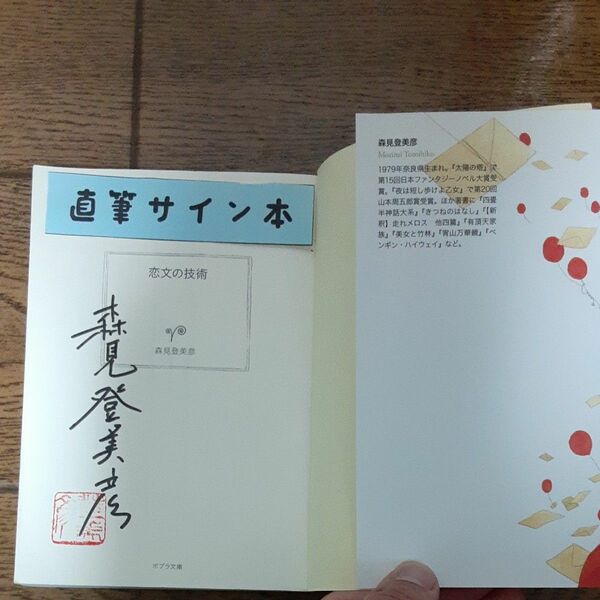 直筆サイン本
恋文の技術
森見登美彦
森見登美彦
ポプラ文庫
森見登美彦
Morimi Tomihiko
1979年奈良県生まれ。『太陽の塔』で
第15回日本ファンタジーノベル大賞受
賞。『夜は短し歩けよ乙女』で第20回
山本周五郎賞受賞。ほか著書に『四畳
半神話大系』『きつねのはなし』『【新
釈】走れメロス 他四篇』『有頂天家
族』『美女と竹林』『宵山万華鏡』『ペ
ンギン・ハイウェイ』など。